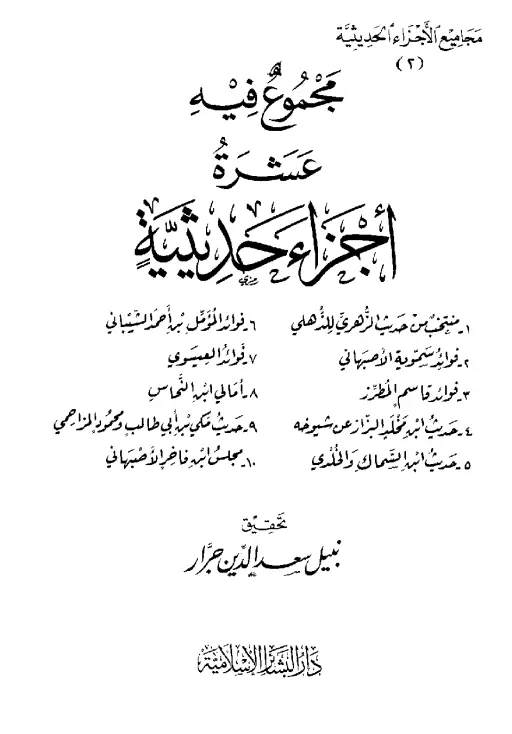 مَجَامِيْعُ الأَجْزَاءِ الحَدِيْثِيَّةِ
(٢)
مَجْمُوعٌ فِيْهِ
عَشَرَةُ
أَجْزَاءَ حَدِيْثِيَّةٍ
١- منتخبٌ من حديث الزُّهريّ للذُّهلي
٢- فوائد سمّويه الأصبهاني
٣- فوائد قاسم المطرّز
٤- حديث ابن مخلد البزاز عن شيوخه
٥- حديث ابن السماك والخلدي
٦- فوائد المؤمّل بن أحمد الشيباني
٧- فوائد العيسوي
٨- أمالي ابن النحاس
٩- حديث مكي بن أبي طالب ومحمود المزاحمي
١٠- مجلس ابن فاخر الأصبهاني
تحقيق
نبيل سعد الدين جرَّار
دَارُ البَشَائِرِ الإِسْلَامِيَّة